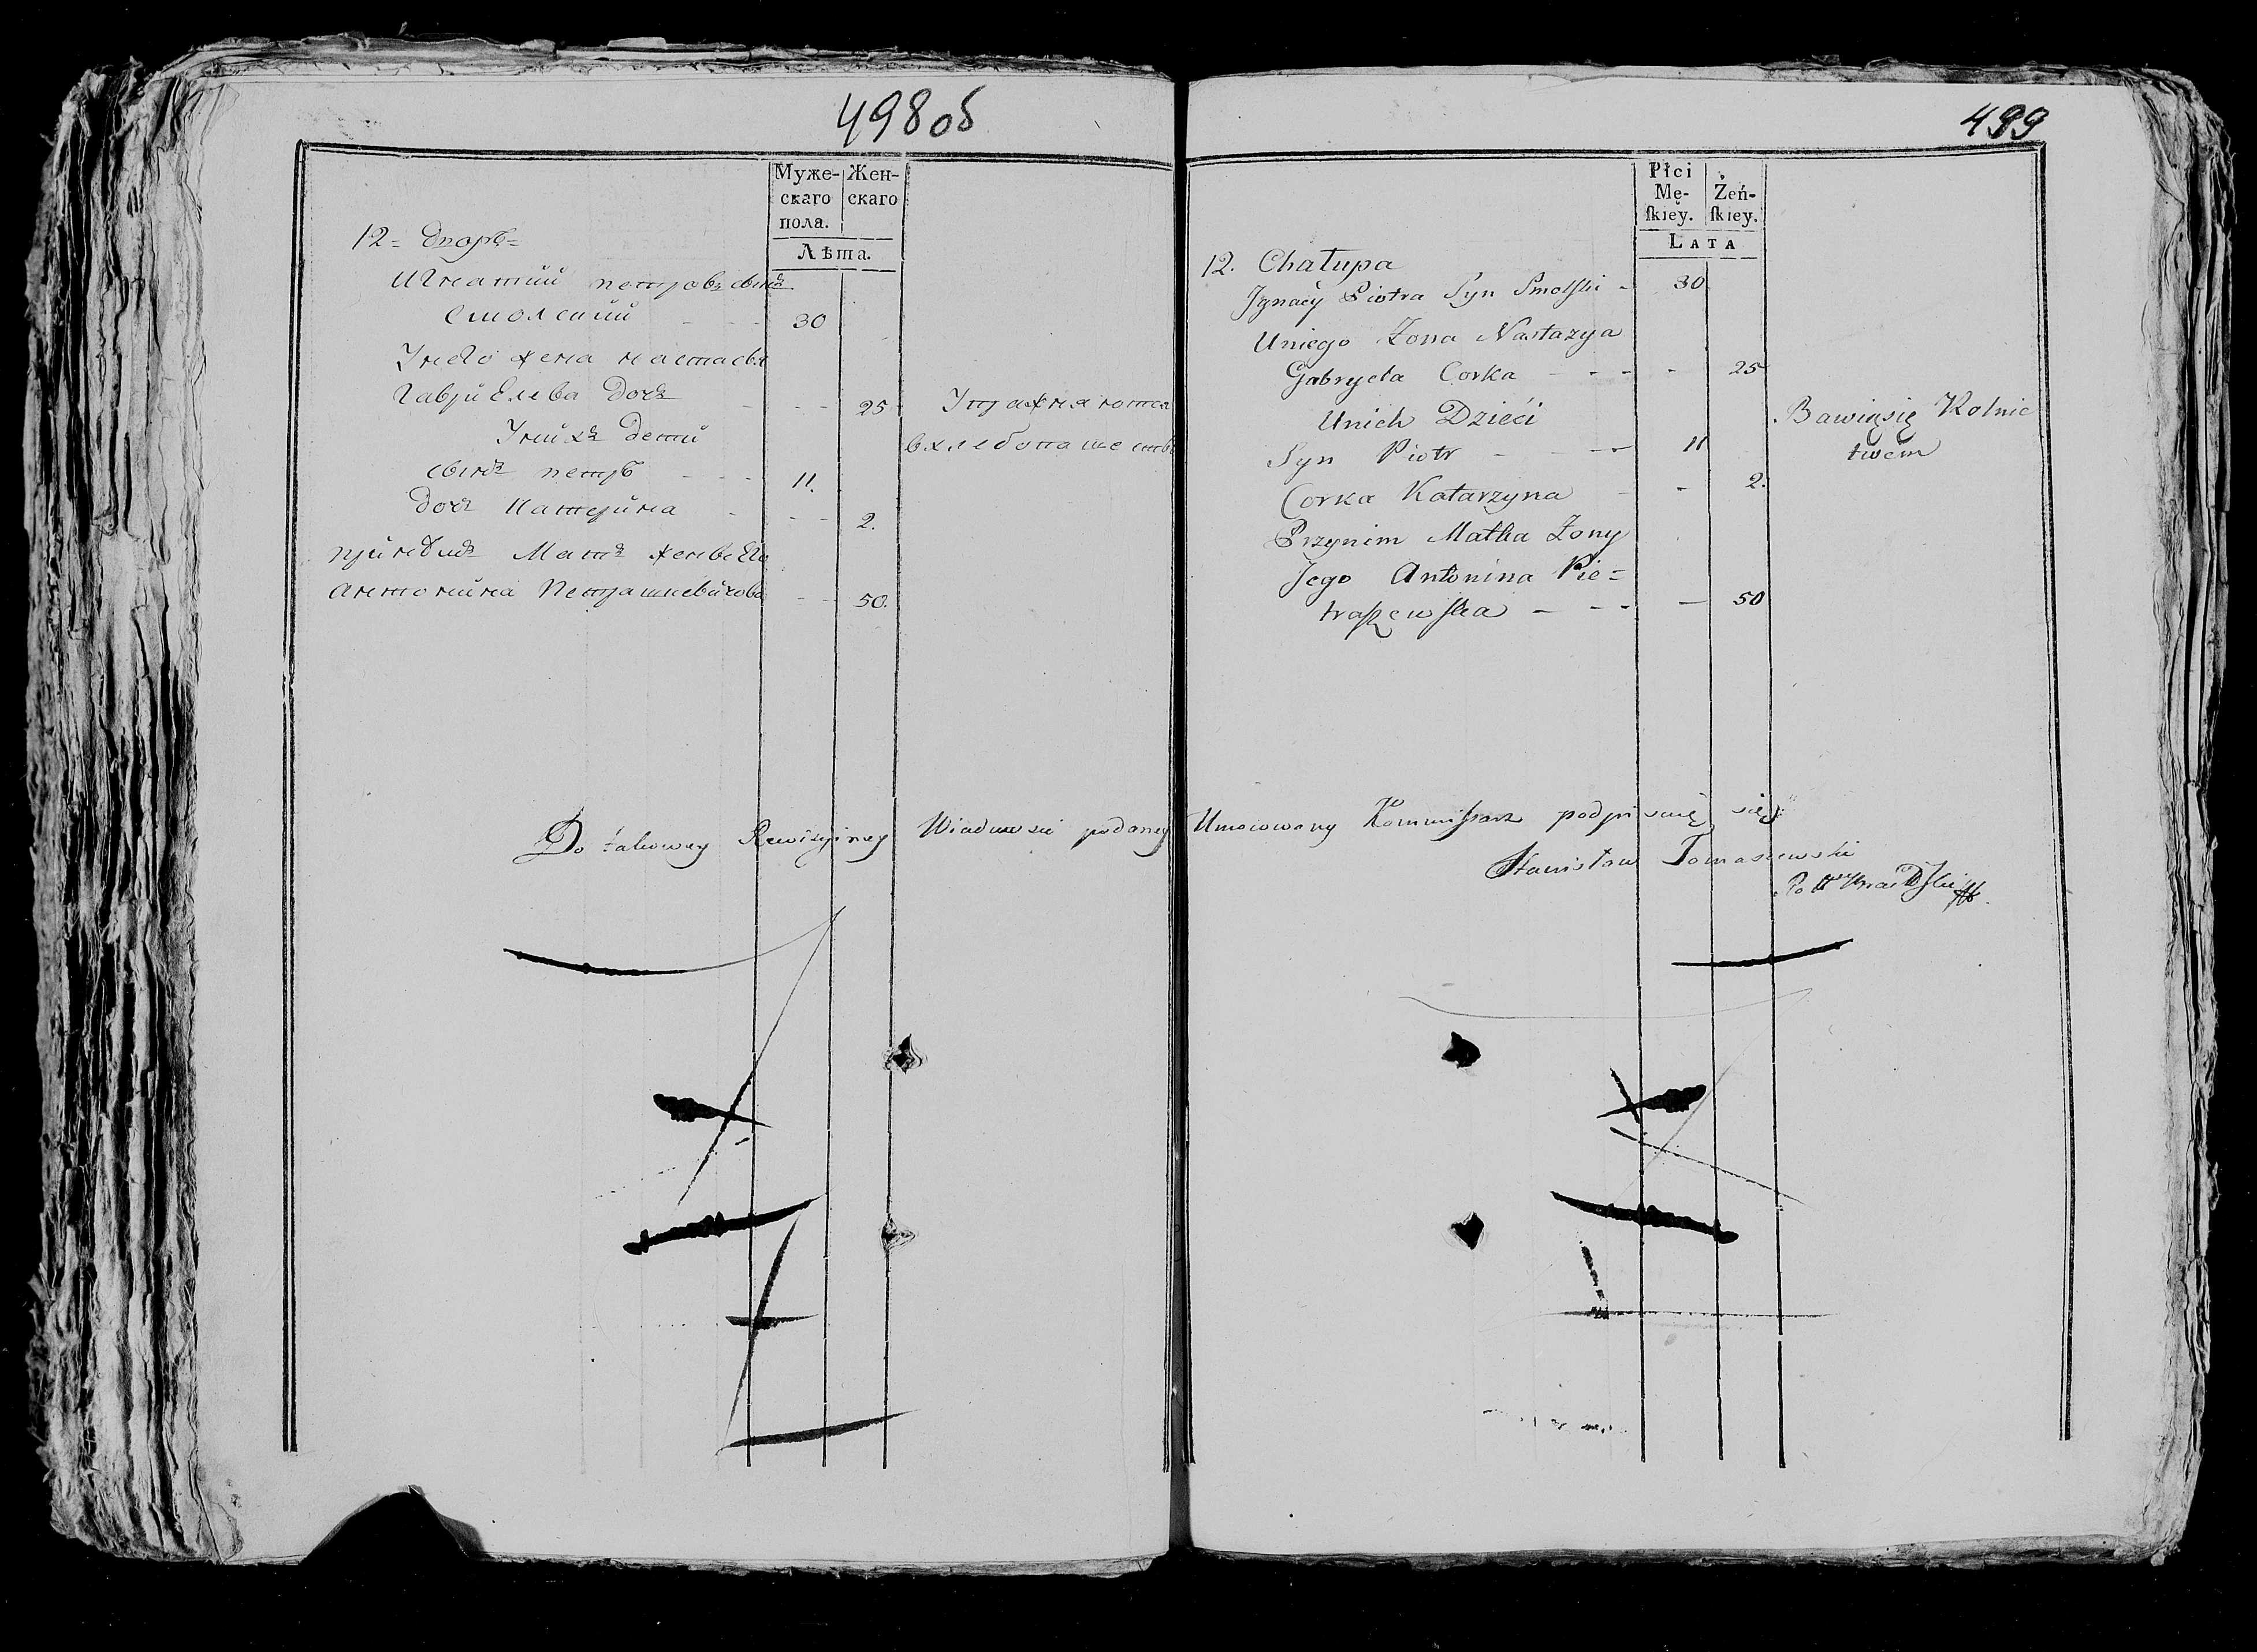 498об
Муже-
скаго
пола.
Жен-
скаго
Лѣта.
12 = Дворъ =
Игнатий петровъ сынъ
Смолский - - - 30
Унего жена настасья
Гаврйелева Дочъ - - - 25
Унйхъ Дети
сынъ петръ - - - 11.
Дочъ Катерйна - - - 2.
прйнемъ Матъ жены Его
антонйна Петрашкевйчова - - 50.
Упражняютса
вхлебопашестве
499
Płci
Mę-
skiey.
Żeń-
skiey.
LATA
12. Chałupa
Jgnacy Piotra Syn Smolski - 30
Uniego Żona Nastazya
Gabryela Corka - - - - 25
Unich Dzieći
Syn Piotr - - - 11
Corka Katarzyna - - 2.
Przynim Matka Żony
Jego Antonina Pie=
traszewska - - - - 50
Bawiąsię Rolnic
twem
Do takowey Rewizyiney Wiadmosci podaney Umocowany Kommissarz podpisuię się
Stanisław Tomaszewski